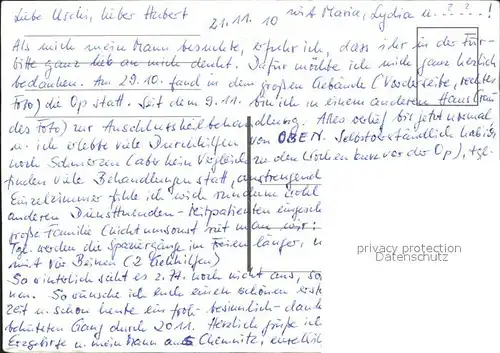 Liebe Uschi, lieber Herbert 21.11.10 mit Maria, Lydia u. ? ? ?!
Als mich mein Mann besuchte, erfuhr ich, dass ihr in der Für-
bitte ganz lieb an mich denkt. Dafür möchte ich mich ganz herzlich
bedanken. Am 29.10. fand in dem großen Gebäude (Vorderseite, rechtes
Foto) die Op statt. Seit dem 9.11. bin ich in einem anderen Haus
des Foto) zur Anschlussheilbehandlung. Alles verlief bis jetzt normal
u. ich erlebte viele Durchhilfen von OBEN. Selbstverständlich hab ich
noch Schmerzen (aber kein Vergleich zu den Wochen kurz vor der Op), tgl.
finden viele Behandlungen statt, anstrengend
Einzelzimmer fühle ich mich rundum wohl
anderen Mitpatienten
große Familie (nicht umsonst sagt man hier:
Tgl. werden die Spaziergänge im Freien länger, u
mit vier Beinen (2 Gehhilfen)
So winterlich sieht es z. Zt. noch nicht aus, so
nen. So wünsche ich Euch einen schönen erste
zeit u. schon heute ein froh-besinnlich-dank
behüteten Gang durch 2011. Herzlich grüße ich
Erzgebirge u. mein Mann aus Chemnitz,
privacy protection
Datenschutz